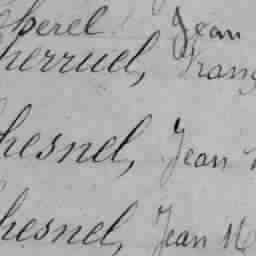 herel Jean
herruel, Franç
hesnel, Jean
hesnel, Jean M